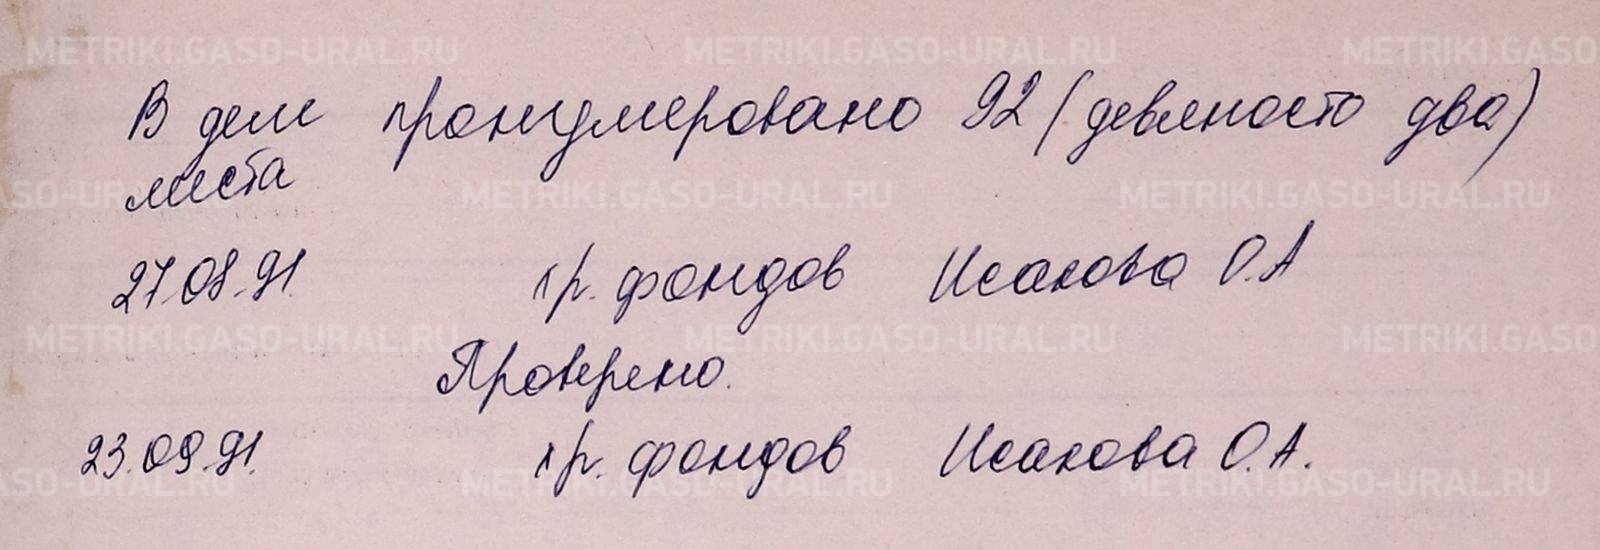 METRIKI.GASO-URAL.RU METRIKI.GASO-URAL.RU METRIKI.GASO
В деле пронумеровано 92 (девяносто два)
листа
ASO-URAL.RU METRIKI.GASO-URAL.RU METRIKI.GASO-URAL.RU
27.08.91. хр. фондов Исакова О.А
METRIKI.GASO-URAL.RU METRIKI.GASO-URAL.RU METRIKI.GASO
Проверено.
23.09.91. хр. фондов Исакова О.А.
ASO-URAL.RU METRIKI.GASO-URAL.RU METRIKI.GASO-URAL.RU